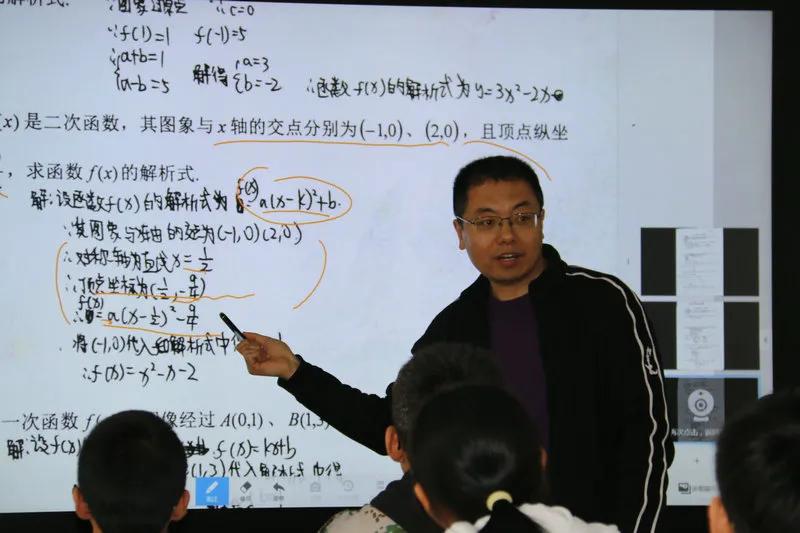 解析式.
∵图象过原点 ∴c=0
∵f(1)=1 f(-1)=5
∴{a+b=1 a-b=5 解得{a=3 b=-2 ∴函数f(x)的解析式为y=3x²-2x
(x) 是二次函数，其图象与 x 轴的交点分别为(-1,0)、(2,0)，且顶点纵坐
，求函数 f(x) 的解析式.
解:设函数f(x)的解析式为f(x)=a(x-k)²+b.
∵其图象与x轴的交点为(-1,0)(2,0)
∴对称轴为直线x=1/2
∴顶点坐标为(1/2,-9/4)
∴f(x)=a(x-1/2)²-9/4
将(-1,0)代入 解析式中
∴f(x)=x²-x-2
一次函数 f 像经过 A(0,1)、B(1,3)
解:设f(x) f(x)=kx+b
(1,3)代入 解析式中得
批注